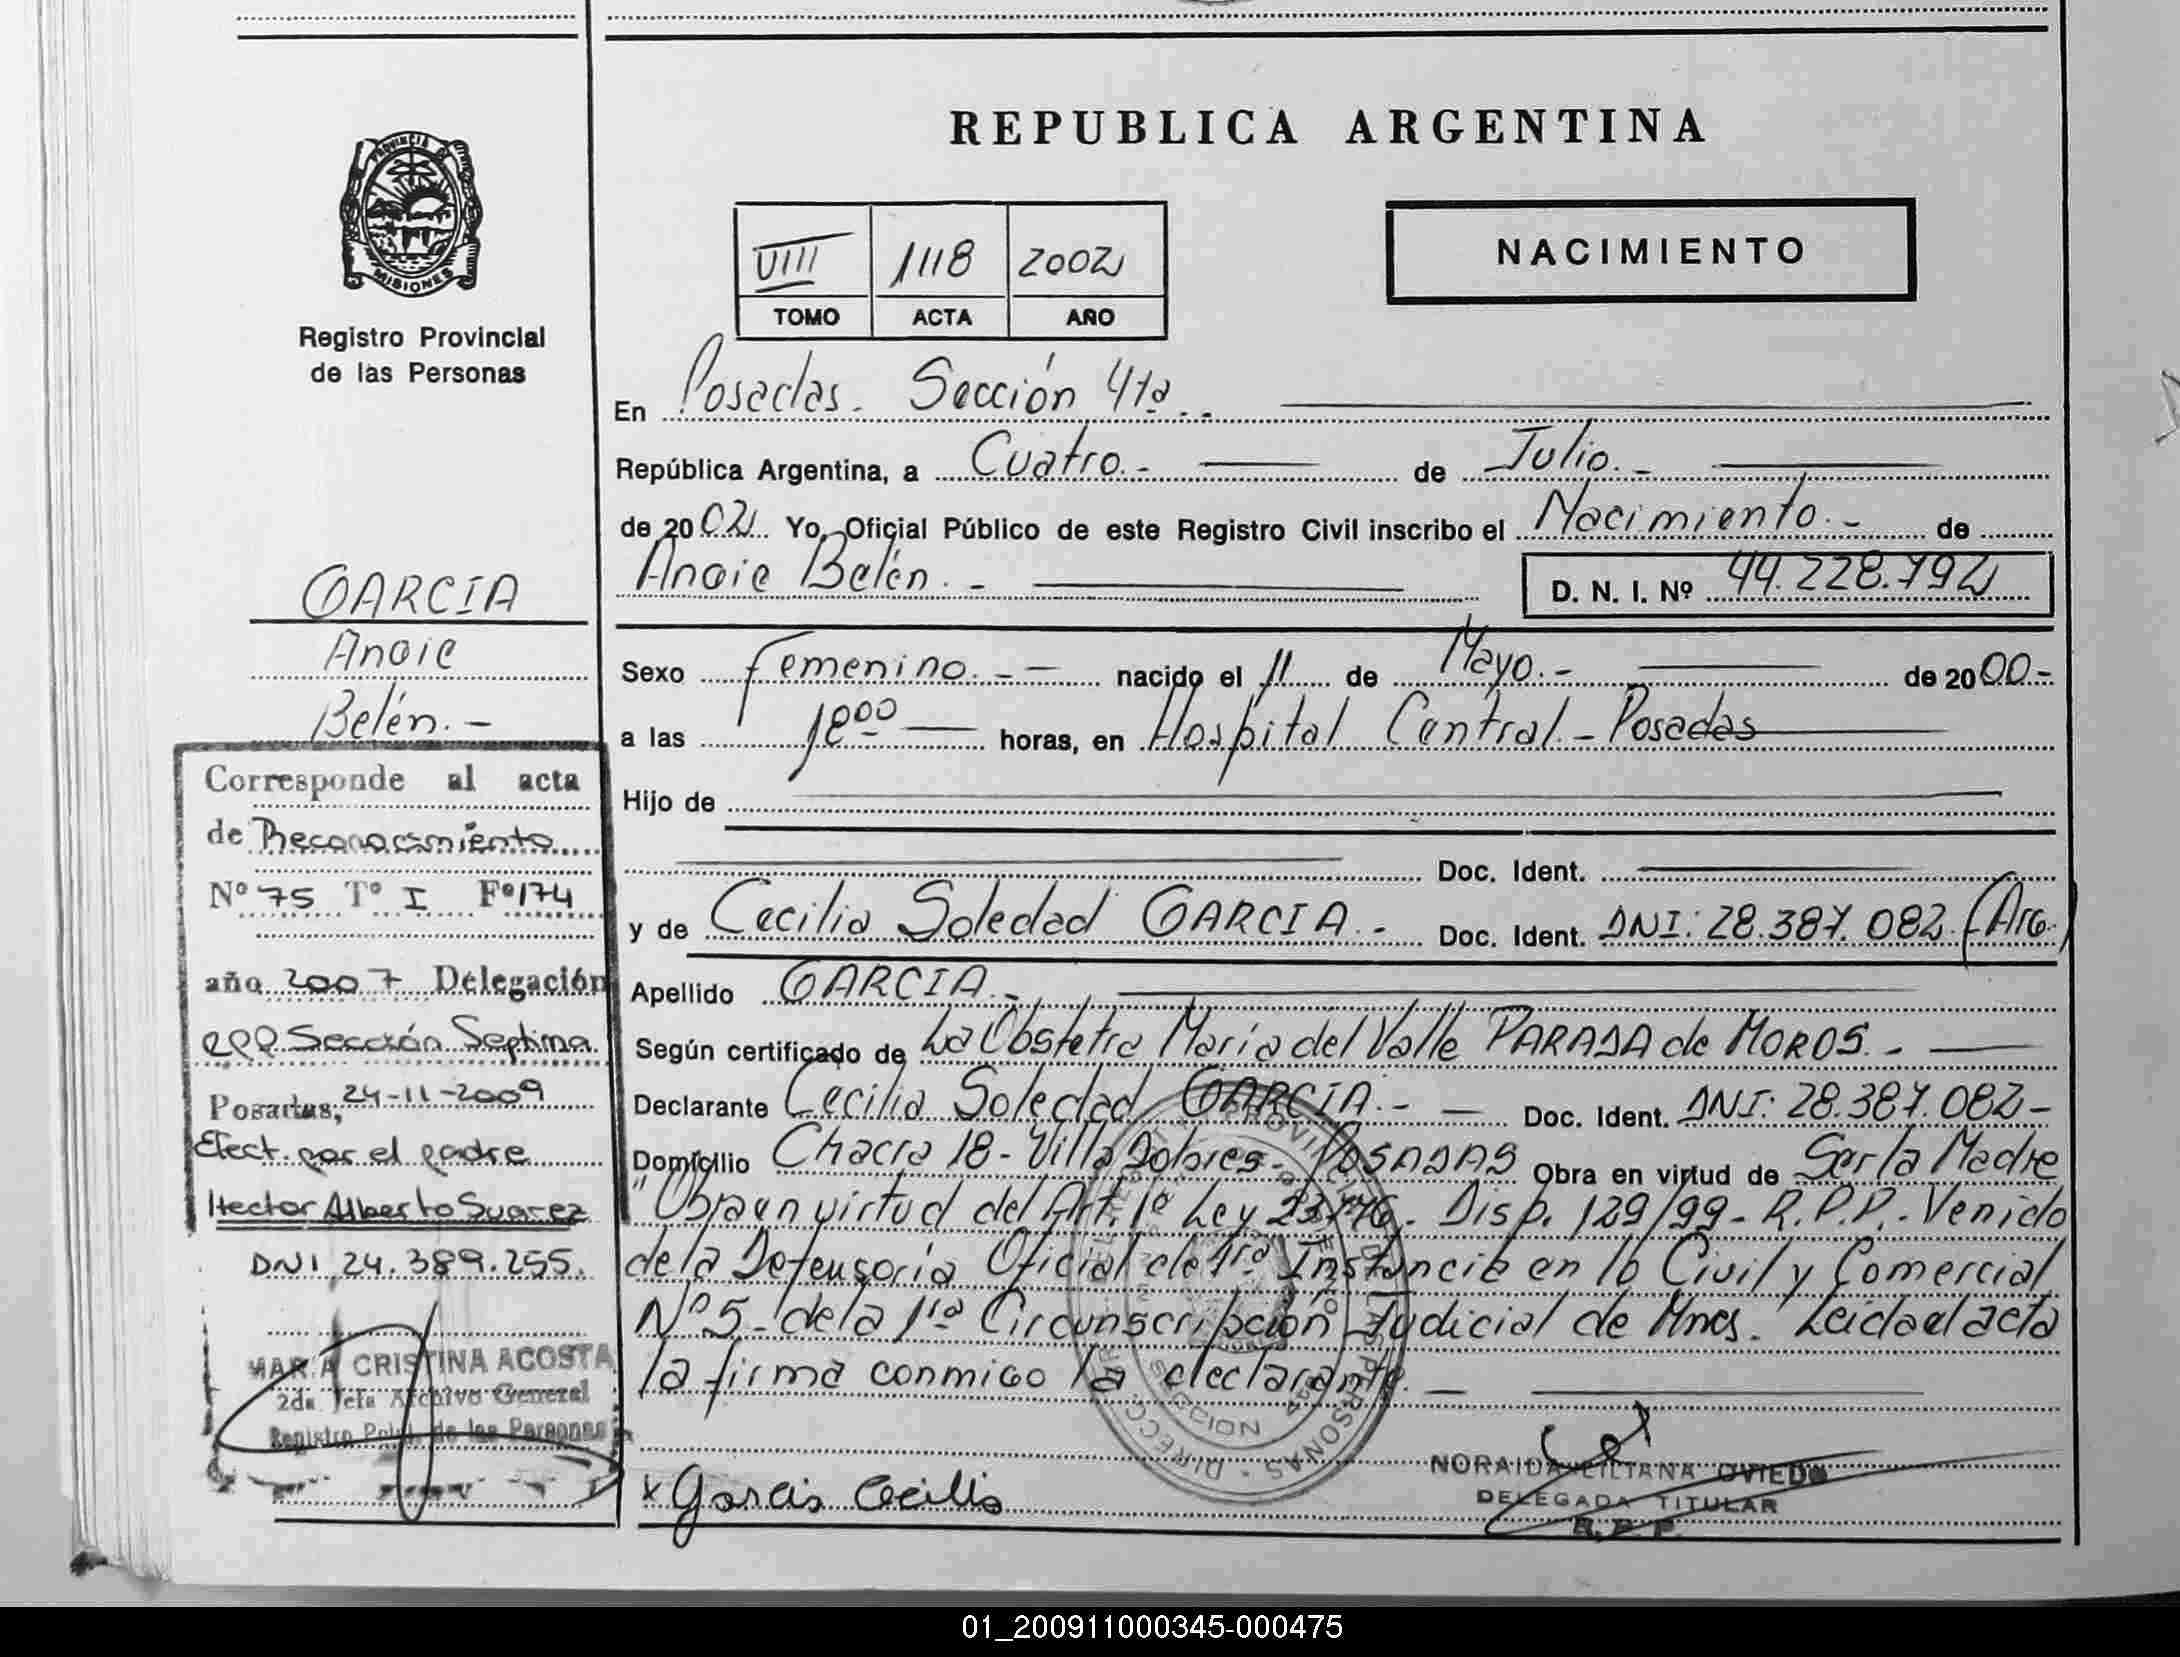 PROVINCIA DE
MISIONES
Registro Provincial
de las Personas
GARCIA
Angie
Belén.-
Corresponde al acta
de Reconocimiento
Nº 75 Tº I Fº 174
año 2007 Delegación
RPP Sección Septima
Posadas, 24-11-2009
Efect. por el padre
Hector Alberto Suarez
DNI 24.389.255.
MARIA CRISTINA ACOSTA
2da Jefa Archivo General
Registro de las Personas
REPUBLICA ARGENTINA
VIII 1118 2002
TOMO ACTA AÑO
NACIMIENTO
En Posadas. Sección 4ta.-
República Argentina, a Cuatro.- de Julio.-
de 2002 Yo, Oficial Público de este Registro Civil inscribo el Nacimiento.- de
Angie Belén.- D. N. I. Nº 44.228.792
Sexo Femenino.- nacido el 11 de Mayo.- de 2000-
a las 18 00 horas, en Hospital Central.- Posadas
Hijo de
Doc. Ident.
y de Cecilia Soledad GARCIA.- Doc. Ident. DNI: 28.387.082 (Arg.)
Apellido GARCIA.-
Según certificado de La Obstetra María del Valle PARADA de MOROS.-
Declarante Cecilia Soledad GARCIA.- Doc. Ident. DNI: 28.387.082-
Domicilio Chacra 18- Villa Dolores- POSADAS Obra en virtud de Ser la Madre
"Obra en virtud del Art. 1º Ley 23776. Disp. 129/99- R.P.P.- Venido
de la Defensoría Oficial de 1ra Instancia en lo Civil y Comercial
Nº 5- de la 1ra Circunscripción Judicial de Mnes. Leida el acta
la firma conmigo la declarante.-
x Garcia Cecilia
NORAIDA LILIANA OVIEDO
DELEGADA TITULAR
R. P. P.
01_200911000345-000475